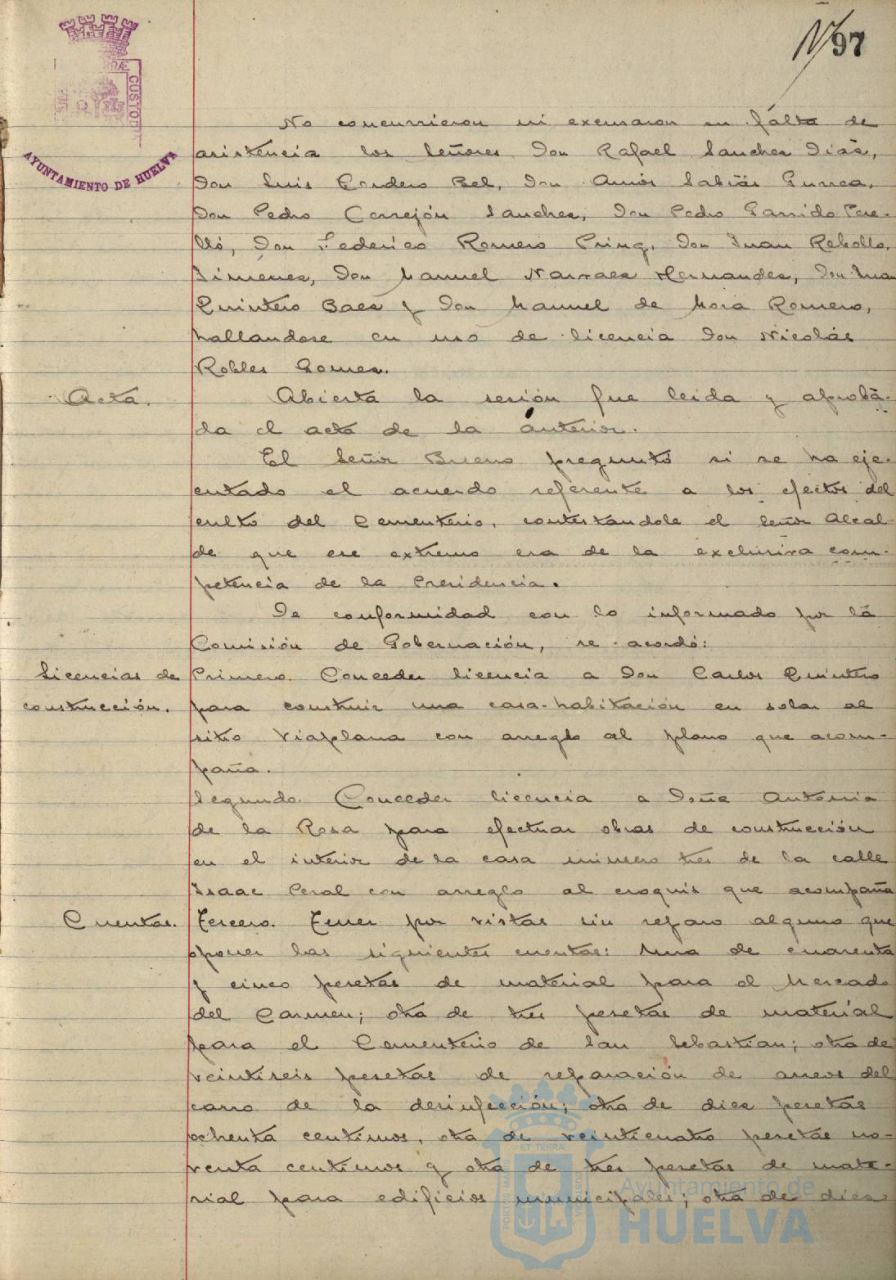 97
CUSTO
AYUNTAMIENTO DE HUELVA
No concurrieron ni excusaron su falta de
asistencia los Señores Don Rafael Sanchez Diaz,
Don Luis Cordero Bel, Don Amós Sabrás Gurrea,
Don Pedro Cerrejón Sanchez, Don Pedro Garrido Pere-
lló, Don Federico Romero Pring, Don Juan Rebollo
Jimenez, Don Manuel Narvaez Hernandez, Don
Quintero Baez y Don Manuel de Mora Romero,
hallandose en uso de licencia Don Nicolás
Robles Gomez.
Acta.
Abierta la sesión fue leida y aproba-
da el acta de la anterior.
El Señor Bueno preguntó si se ha eje-
cutado el acuerdo referente a los efectos del
culto del Cementerio, contestandole el Señor Alcal-
de que ese extremo era de la exclusiva com-
petencia de la Presidencia.
De conformidad con lo informado por la
Comisión de Gobernación, se acordó:
Licencias de
construcción.
Primero. Conceder licencia a Don Carlos Quintero
para construir una casa-habitación en solar al
sitio Viaplana con arreglo al plano que acom-
paña.
Segundo. Conceder licencia a Doña Antonia
de la Rosa para efectuar obras de construcción
en el interior de la casa número tres de la calle
Isaac Peral con arreglo al croquis que acompaña
Cuentas.
Tercero. Tener por vistas sin reparo alguno que
oponer las siguientes cuentas: Una de cuarenta
y cinco pesetas de material para el Mercado
del Carmen; otra de tres pesetas de material
para el Cementerio de San Sebastian; otra de
veintiseis pesetas de reparación de arreos del
carro de la desinfección; otra de diez pesetas
ochenta centimos, otra de veinticuatro pesetas no-
venta centimos y otra de tres pesetas de mate-
rial para edificios municipales; otra de diez
Ayuntamiento de
HUELVA